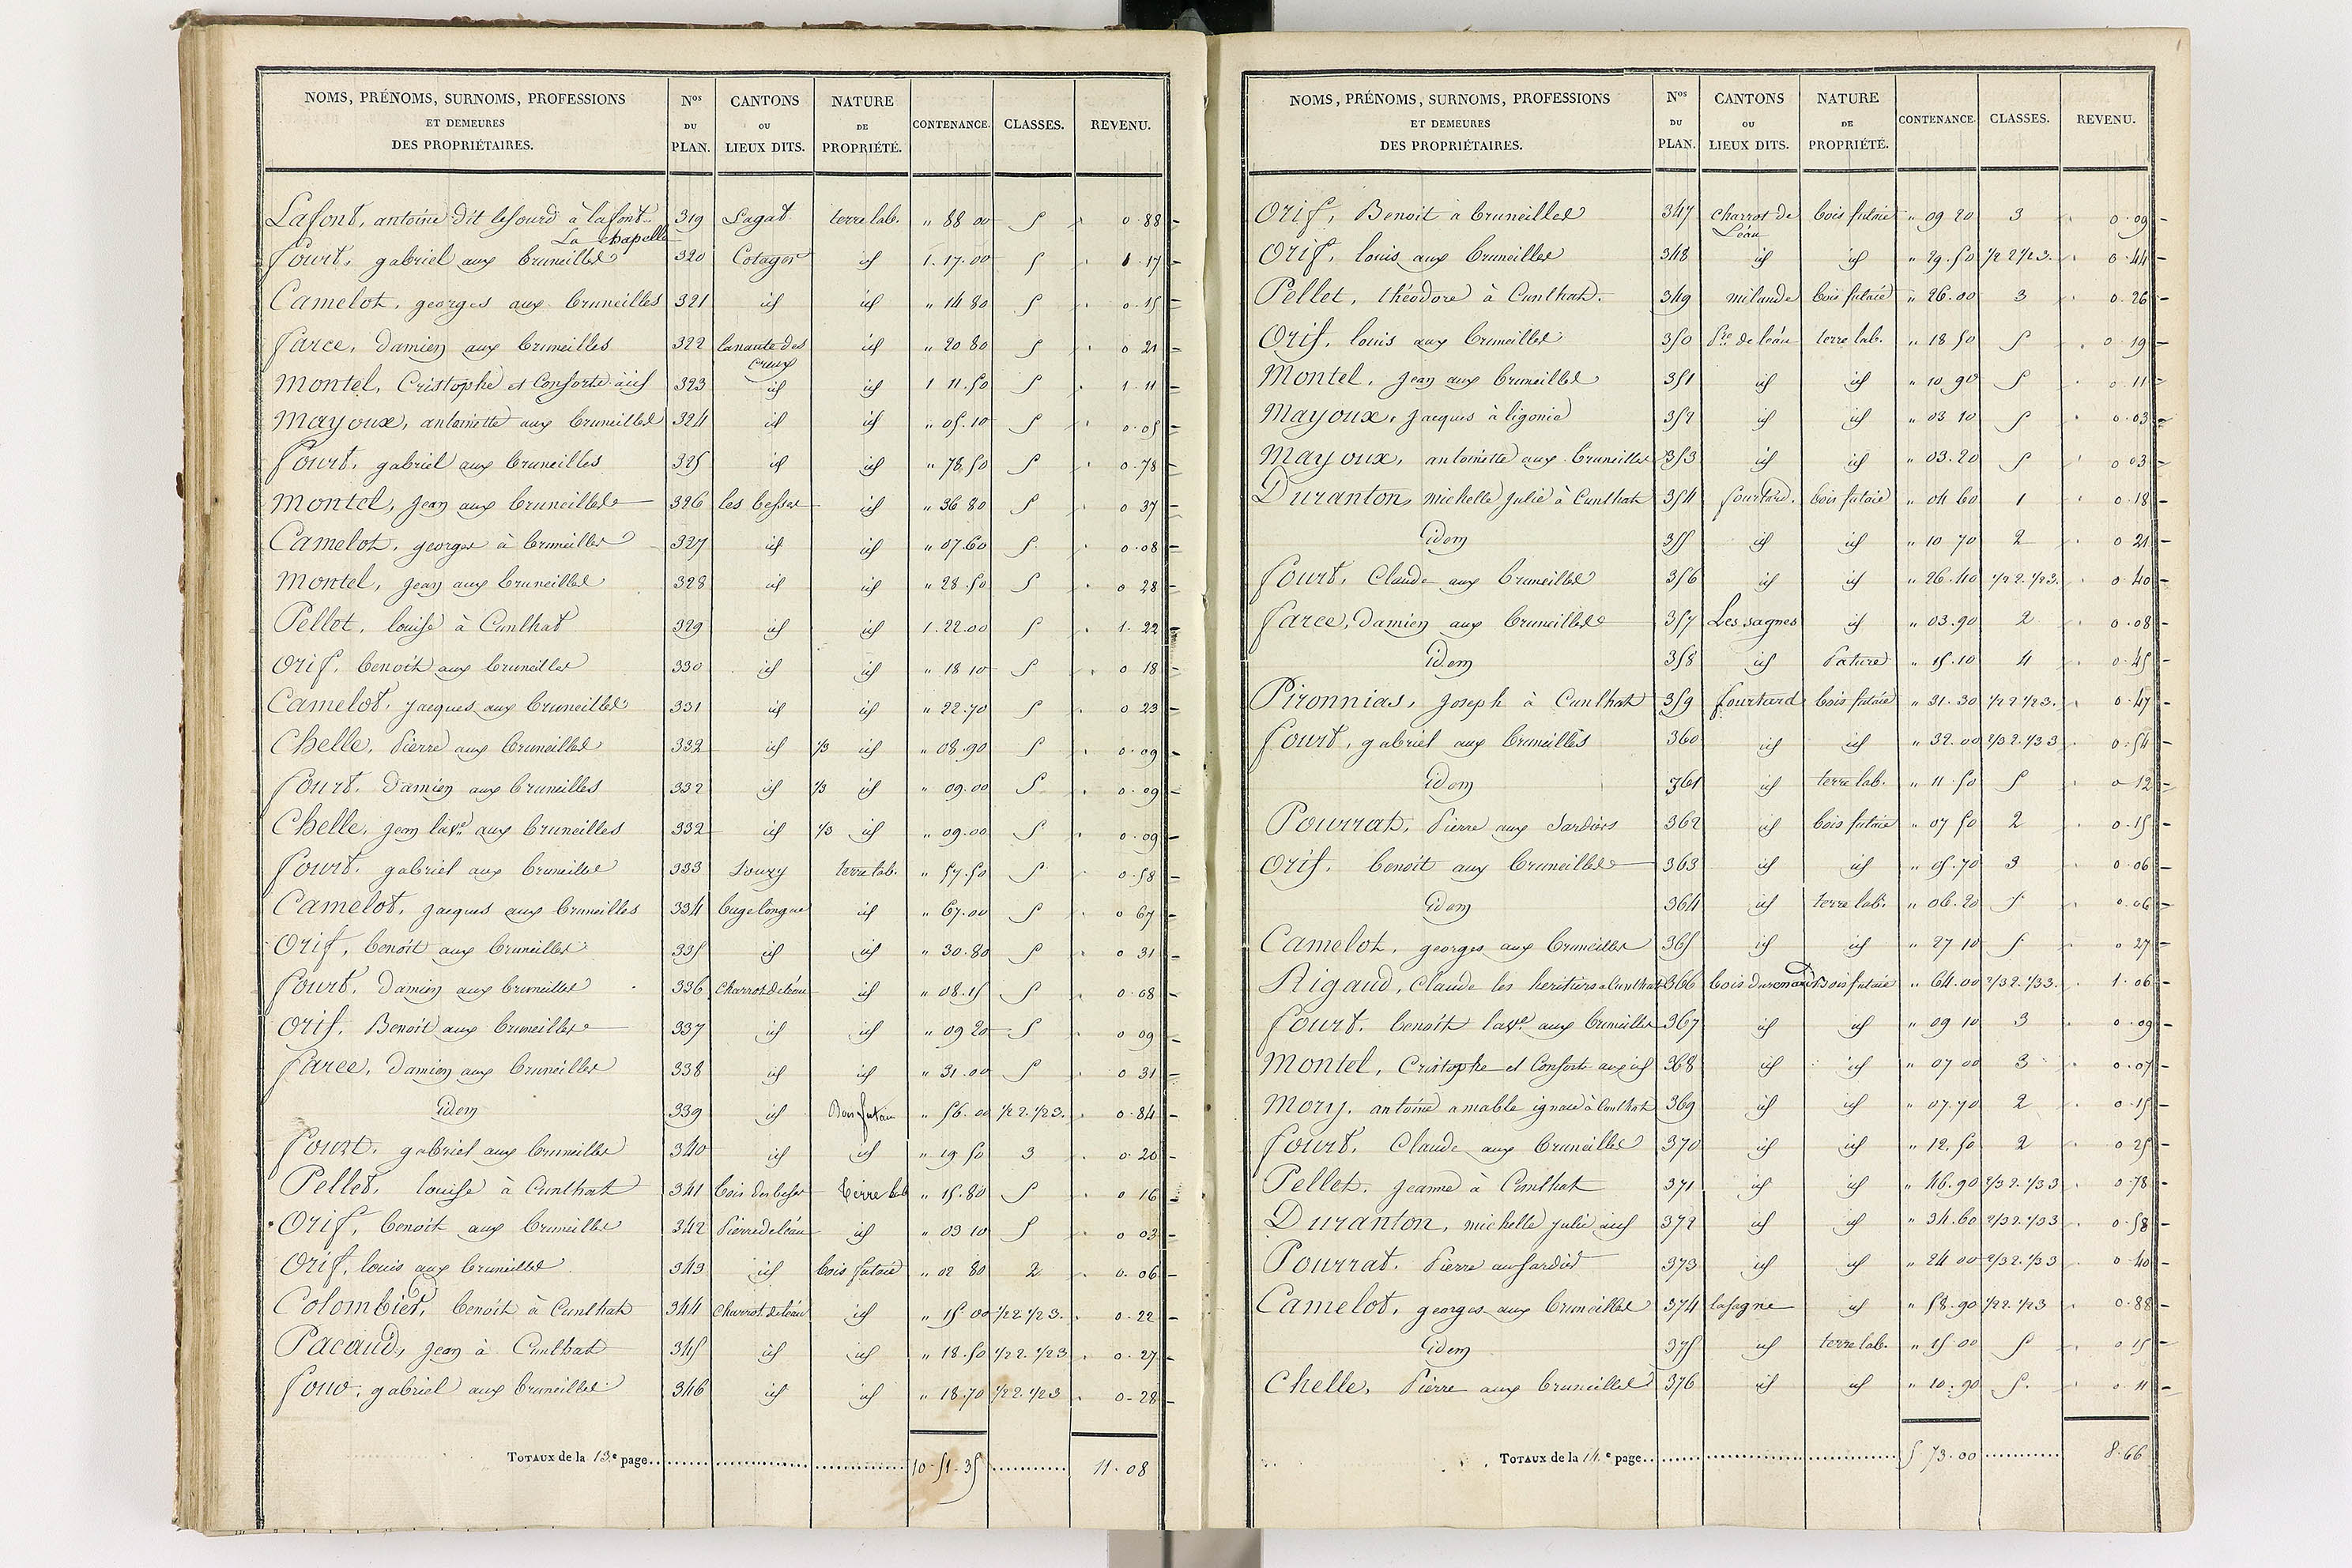 NOMS, PRÉNOMS, SURNOMS, PROFESSIONS ET DEMEURES DES PROPRIÉTAIRES. Nos DU PLAN. CANTONS OU LIEUX DITS. NATURE DE PROPRIÉTÉ. CONTENANCE. CLASSES. REVENU.
Lafont, antoine dit le sourd à lafont La chapelle 319 Sagat terre lab. " 88 00 5 0.88
fourt, gabriel aux bruneilles 320 Cotager id 1.17.00 5 1.17
Camelot, georges aux bruneilles 321 id id " 14 80 5 0.15
farce, Damien aux bruneilles 322 lanaute des creux id " 20 80 5 0 21
Montel, Cristophe et Consorts aux id 323 id id 1 11.50 5 1.11
Mayoux, antoinette aux bruneilles 324 id id " 05.10 5 0.05
fourt, gabriel aux bruneilles 325 id id " 78.50 5 0.78
Montel, Jean aux bruneilles 326 les besses id " 36 80 5 0 37
Camelot, georges à bruneilles 327 id id " 07.60 5 0.08
Montel, Jean aux bruneilles 328 id id " 28.50 5 0 28
Pellet, louise à Cunlhat 329 id id 1.22.00 5 1.22
Orif, benoit aux bruneilles 330 id id " 18 10 5 0 18
Camelot, Jacques aux bruneilles 331 id id " 22.70 5 0 23
Chelle, Pierre aux bruneilles 332 id 1/3 id " 08.90 5 0.09
fourt, Damien aux bruneilles 332 id 1/3 id " 09.00 5 0.09
Chelle, Jean la ve aux bruneilles 332 id 1/3 id " 09.00 5 0.09
fourt, gabriel aux bruneilles 333 Souzy terre lab. " 57.50 5 0.58
Camelot, Jacques aux bruneilles 334 buge longue id " 67.00 5 0 67
Orif, benoit aux bruneilles 335 id id " 30.80 5 0 31
fourt, Damien aux bruneilles 336 charrot de léau id " 08.15 5 0.08
Orif, Benoit aux bruneilles 337 id id " 09 20 5 0 09
farce, Damien aux bruneilles 338 id id " 31.00 5 0 31
idem 339 id Bois futaie " 56.00 1/2 2. 1/2 3. 0.84
fourt, gabriel aux bruneilles 340 id id " 19 50 3 0.20
Pellet, louise à Cunlhat 341 bois des besses terre lab " 15.80 5 0 16
Orif, benoit aux bruneilles 342 Pierre de léau id " 03 10 5 0 03
Orif, louis aux bruneilles 343 id bois futaie " 02 80 2 0.06
Colombier, benoit à Cunlhat 344 charrot de léau id " 15 00 1/2 2 1/2 3. 0.22
Pacaud, Jean à Cunlhat 345 id id " 18.50 1/2 2. 1/2 3 0.27
four, gabriel aux bruneilles 346 id id " 18.70 1/2 2. 1/2 3 0.28
TOTAUX de la 13.e page 10.51.35 11.08
NOMS, PRÉNOMS, SURNOMS, PROFESSIONS ET DEMEURES DES PROPRIÉTAIRES. Nos DU PLAN. CANTONS OU LIEUX DITS. NATURE DE PROPRIÉTÉ. CONTENANCE. CLASSES. REVENU.
Orif, Benoit à bruneilles 347 charrot de Léau bois futaie " 09 20 3 0.09
Orif, louis aux bruneilles 348 id id " 29.50 1/2 2 1/2 3. 0.44
Pellet, théodore à Cunlhat. 349 milande bois futaie " 26.00 3 0.26
Orif, louis aux bruneilles 350 Pre de léau terre lab. " 18 50 5 0 19
Montel, Jean aux bruneilles 351 id id " 10 90 5 0.11
Mayoux, Jacques à ligonie 352 id id " 03 10 5 0.03
Mayoux, antoinette aux bruneilles 353 id id " 03.20 5 0 03
Duranton, michelle Julie à Cunlhat 354 fourtard. bois futaie " 04 60 1 0.18
idem 355 id id " 10 70 2 0 21
fourt, Claude aux bruneilles 356 id id " 26.40 1/2 2. 1/2 3. 0.40
farce, Damien aux bruneilles 357 Les sagnes id " 03.90 2 0.08
idem 358 id Pature " 15.10 4 0.45
Pironnias, Joseph à Cunlhat 359 fourtard bois futaie " 31.30 1/2 2 1/2 3. 0.47
fourt, gabriel aux bruneilles 360 id id " 32.00 2/3 2. 1/3 3 0.54
idem 361 id terre lab. " 11 50 5 0 12
Pourrat, Pierre aux Sardiers 362 id bois futaie " 07 50 2 0.15
Orif, benoit aux bruneilles 363 id id " 05.70 3 0.06
idem 364 id terre lab. " 06.20 5 0.06
Camelot, georges aux bruneilles 365 id id " 27 10 5 0 27
Rigaud, Claude les heritiers a Cunlhat 366 bois du renard Bois futaie " 64.00 2/3 2. 1/3 3. 1.06
fourt, benoit la ve aux bruneilles 367 id id " 09 10 3 0.09
Montel, Cristophe et Consorts aux id 368 id id " 07 00 3 0.07
Mory, antoine amable ignace à Cunlhat 369 id id " 07.70 2 0.15
fourt, Claude aux bruneilles 370 id id " 12.50 2 0 25
Pellet, Jeanne à Cunlhat 371 id id " 46.90 2/3 2. 1/3 3 0.78
Duranton, michelle Julie au id 372 id id " 34.60 2/3 2. 1/3 3 0.58
Pourrat, Pierre au Sardier 373 id id " 24 00 2/3 2. 1/3 3 0.40
Camelot, georges aux bruneilles 374 lasagne id " 58.90 1/2 2. 1/2 3 0.88
idem 375 id terre lab. " 15 00 5 0 15
Chelle, Pierre aux bruneilles 376 id id " 10.90 5. 0 11
TOTAUX de la 14.e page 5 73.00 8.66